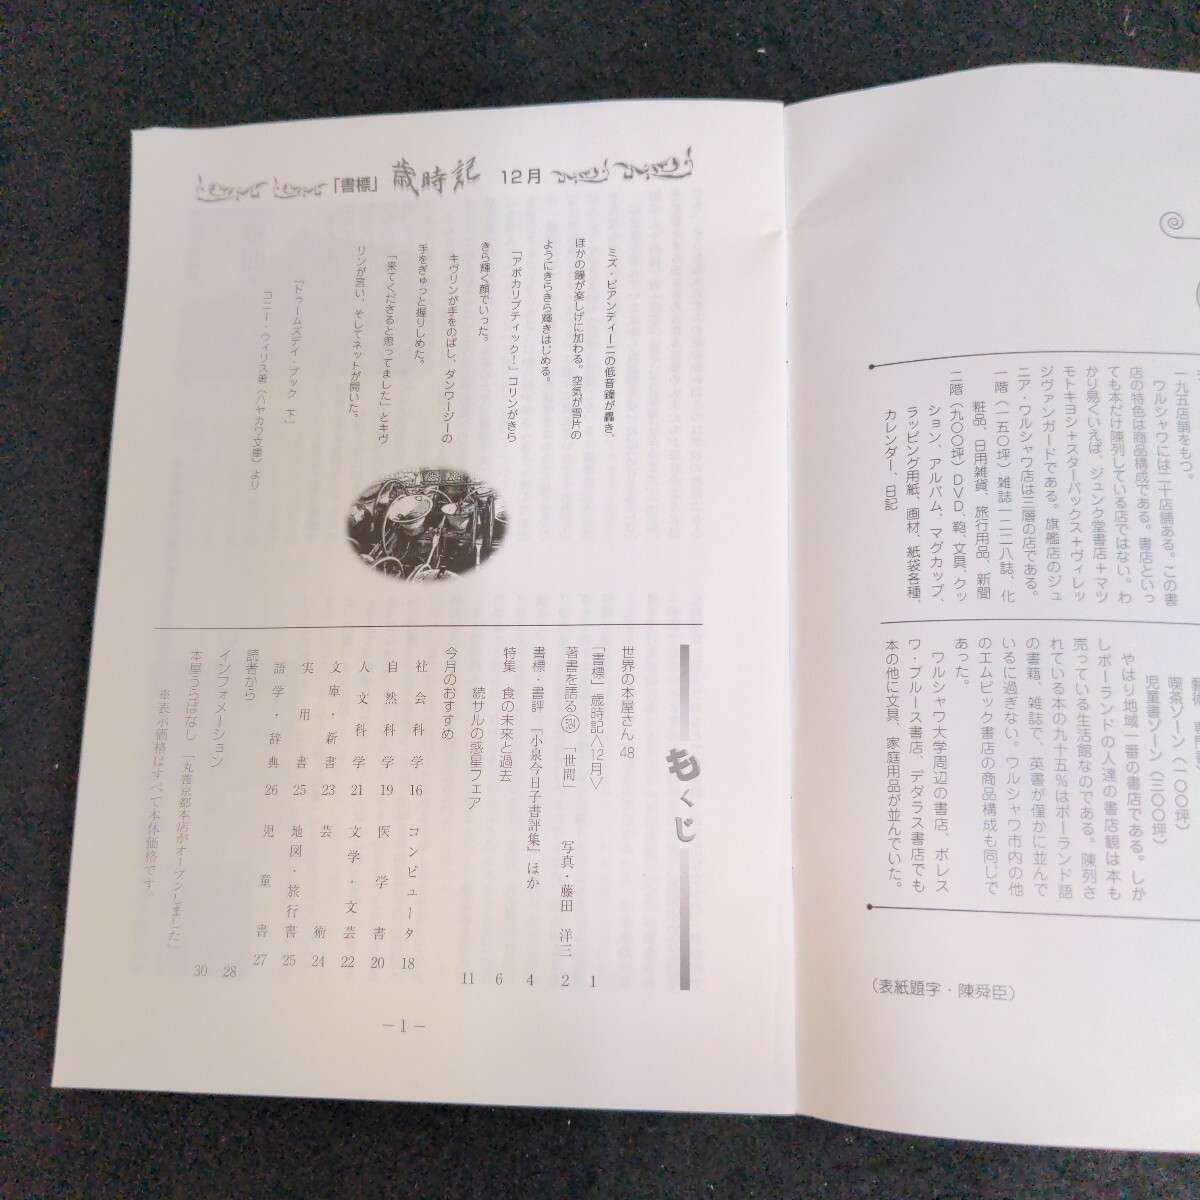 一九五店舗をもつ。
ワルシャワには二十店舗ある。この書
店の特色は商品構成である。書店といっ
ても本だけ陳列している店ではない。わ
かり易くいえば、ジュンク堂書店＋マツ
モトキヨシ＋スターバックス＋ヴィレッ
ジヴァンガードである。旗艦店のジュ
ニア・ワルシャワ店は三層の店である。
一階（一五〇坪）雑誌一二二八誌、化
粧品、日用雑貨、旅行用品、新聞
二階（九〇〇坪）DVD、鞄、文具、クッ
ション、アルバム、マグカップ、
ラッピング用紙、画材、紙袋各種、
カレンダー、日記
喫茶ゾーン（一〇〇坪）
児童書ゾーン（三〇〇坪）
やはり地域一番の書店である。しか
しポーランドの人達の書店観は本も
売っている生活館なのである。陳列さ
れている本の九十五％はポーランド語
の書籍、雑誌で、英書が僅かに並んで
いるに過ぎない。ワルシャワ市内の他
のエムピック書店の商品構成も同じで
あった。
ワルシャワ大学周辺の書店、ボレス
ワ・プルース書店、デダラス書店でも
本の他に文具、家庭用品が並んでいた。
（表紙題字・陳舜臣）
「書標」歳時記 12月
ミズ・ピアンティーニの低音鐘が轟き、
ほかの鐘が楽しげに加わる。空気が雪片の
ようにきらきら輝きはじめる。
「アポカリプティック！」コリンがきら
きら輝く顔でいった。
キヴリンが手をのばし、ダンワージーの
手をぎゅっと握りしめた。
「来てくださると思ってました」とキヴ
リンが言い、そしてネットが開いた。
『ドゥームズデイ・ブック 下』
コニー・ウィリス著（ハヤカワ文庫）より
もくじ
世界の本屋さん 48
「書標」歳時記〈12月〉 1
著書を語る 524 「世間」 写真・藤田 洋三 2
書標・書評『小泉今日子書評集』ほか 4
特集 食の未来と過去 6
続サルの惑星フェア 11
今月のおすすめ
社会科学 16 コンピュータ 18
自然科学 19 医学書 20
人文科学 21 文学・文芸 22
文庫・新書 23 芸術 24
実用書 25 地図・旅行書 25
語学・辞典 26 児童書 27
読者から
インフォメーション 28
本屋うらばなし 「丸善京都本店がオープンしました」 30
※表示価格はすべて本体価格です。
－1－